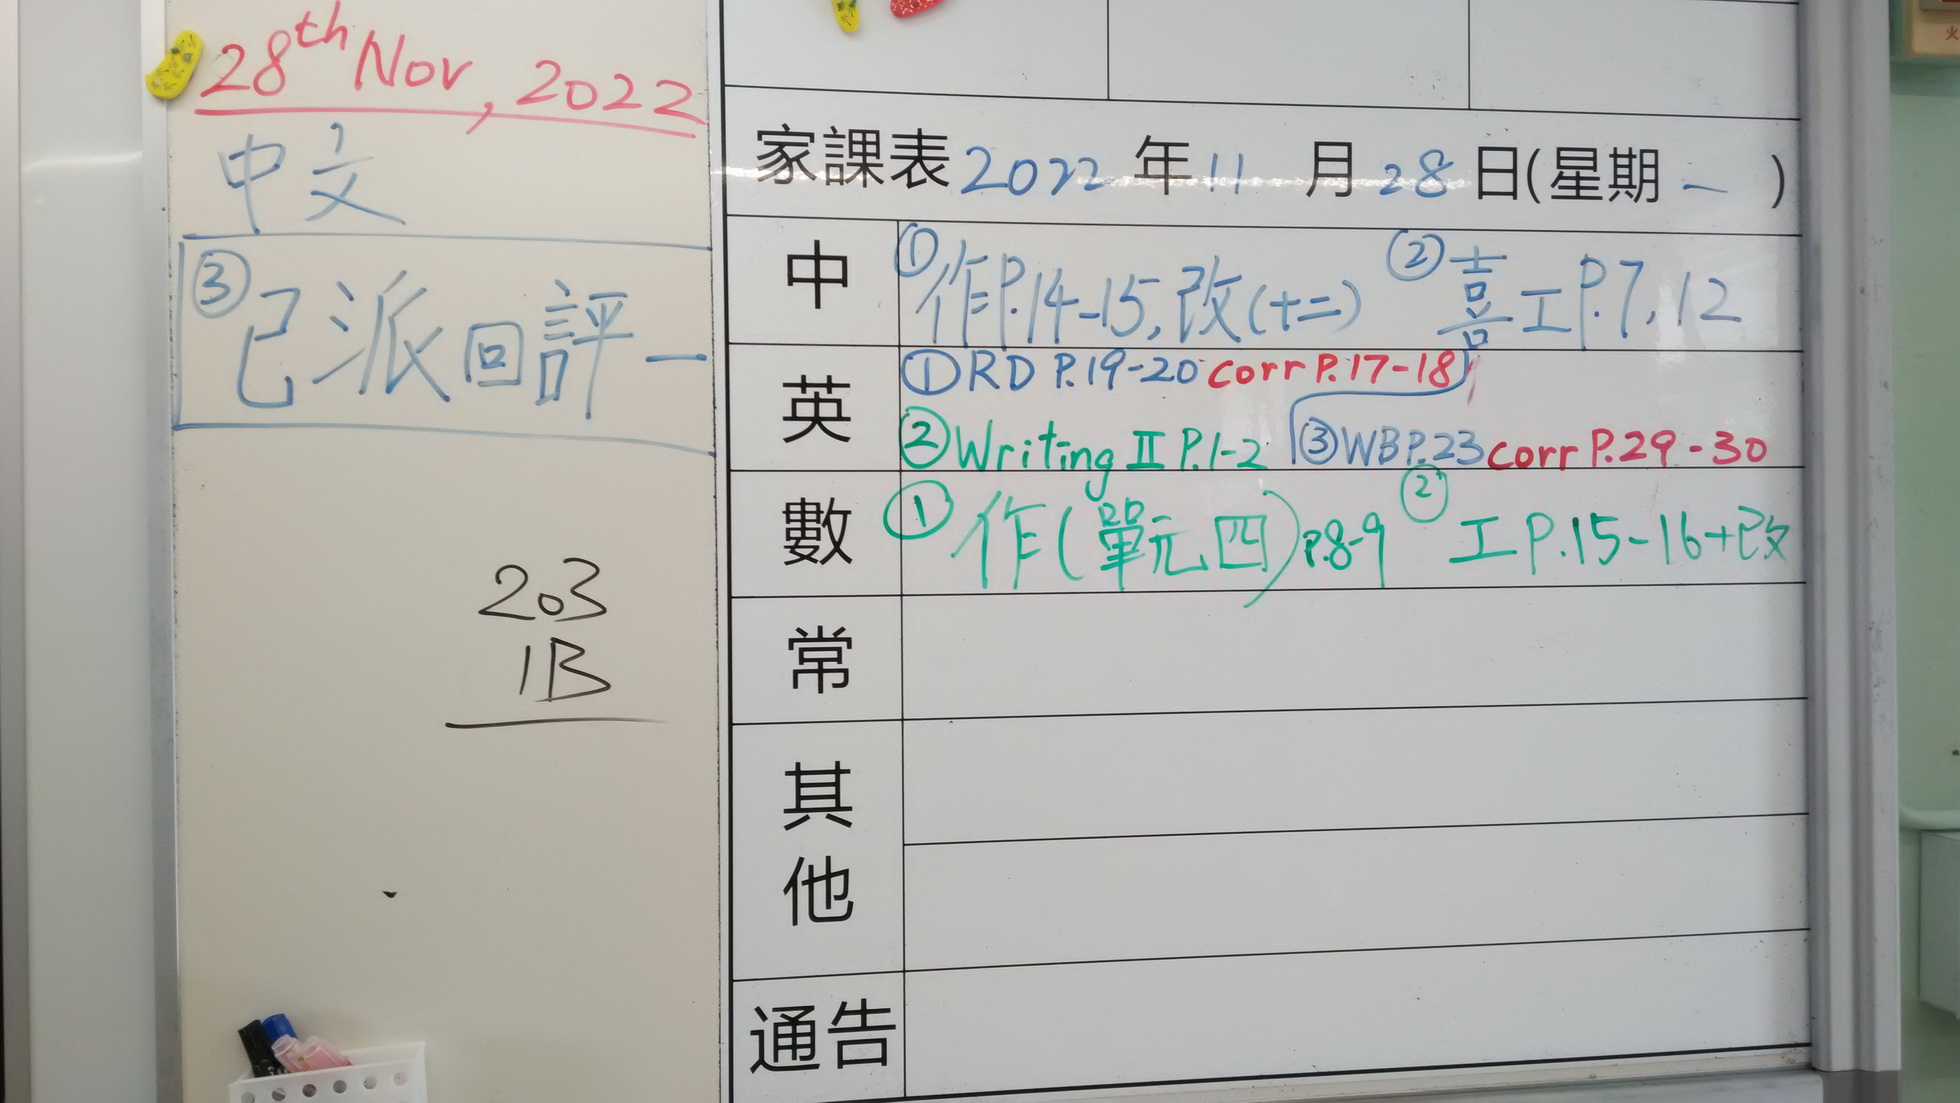 28th Nov, 2022
中文
③已派回評一
203
1B
家課表2022年11月28日(星期一)
中 ①作P.14-15,改(十二) ②喜工P.7,12
英 ①RD P.19-20 corr P.17-18
②Writing II P.1-2 ③WB P.23 corr P.29-30
數 ①作(單元四)P.8-9 ②工P.15-16+改
常
其他
通告
火